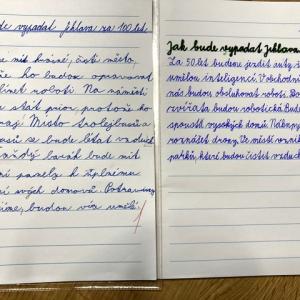 de vypadat Jihlava za 100 let
de mít krásné, čisté město,
že ho budou opravovat
roboti. Na náměstí
stát prior, protože ho
Místo trolejbusů a
se bude létat vzduch
každý barák bude mít
panely k úplnému
ní svých domovů. Potraviny
íme, budou více umělé.
Jak bude vypadat Jihlava
Za 50 let budou jezdit auty ř
umělou inteligencí. V obchodní
nás budou obsluhovat roboti. Do
zvířata budou robotická. Bud
spoustu vysokých domů. Nákupy
roznášet drony. Ve městě vznik
parků, které budou čistit vzduch